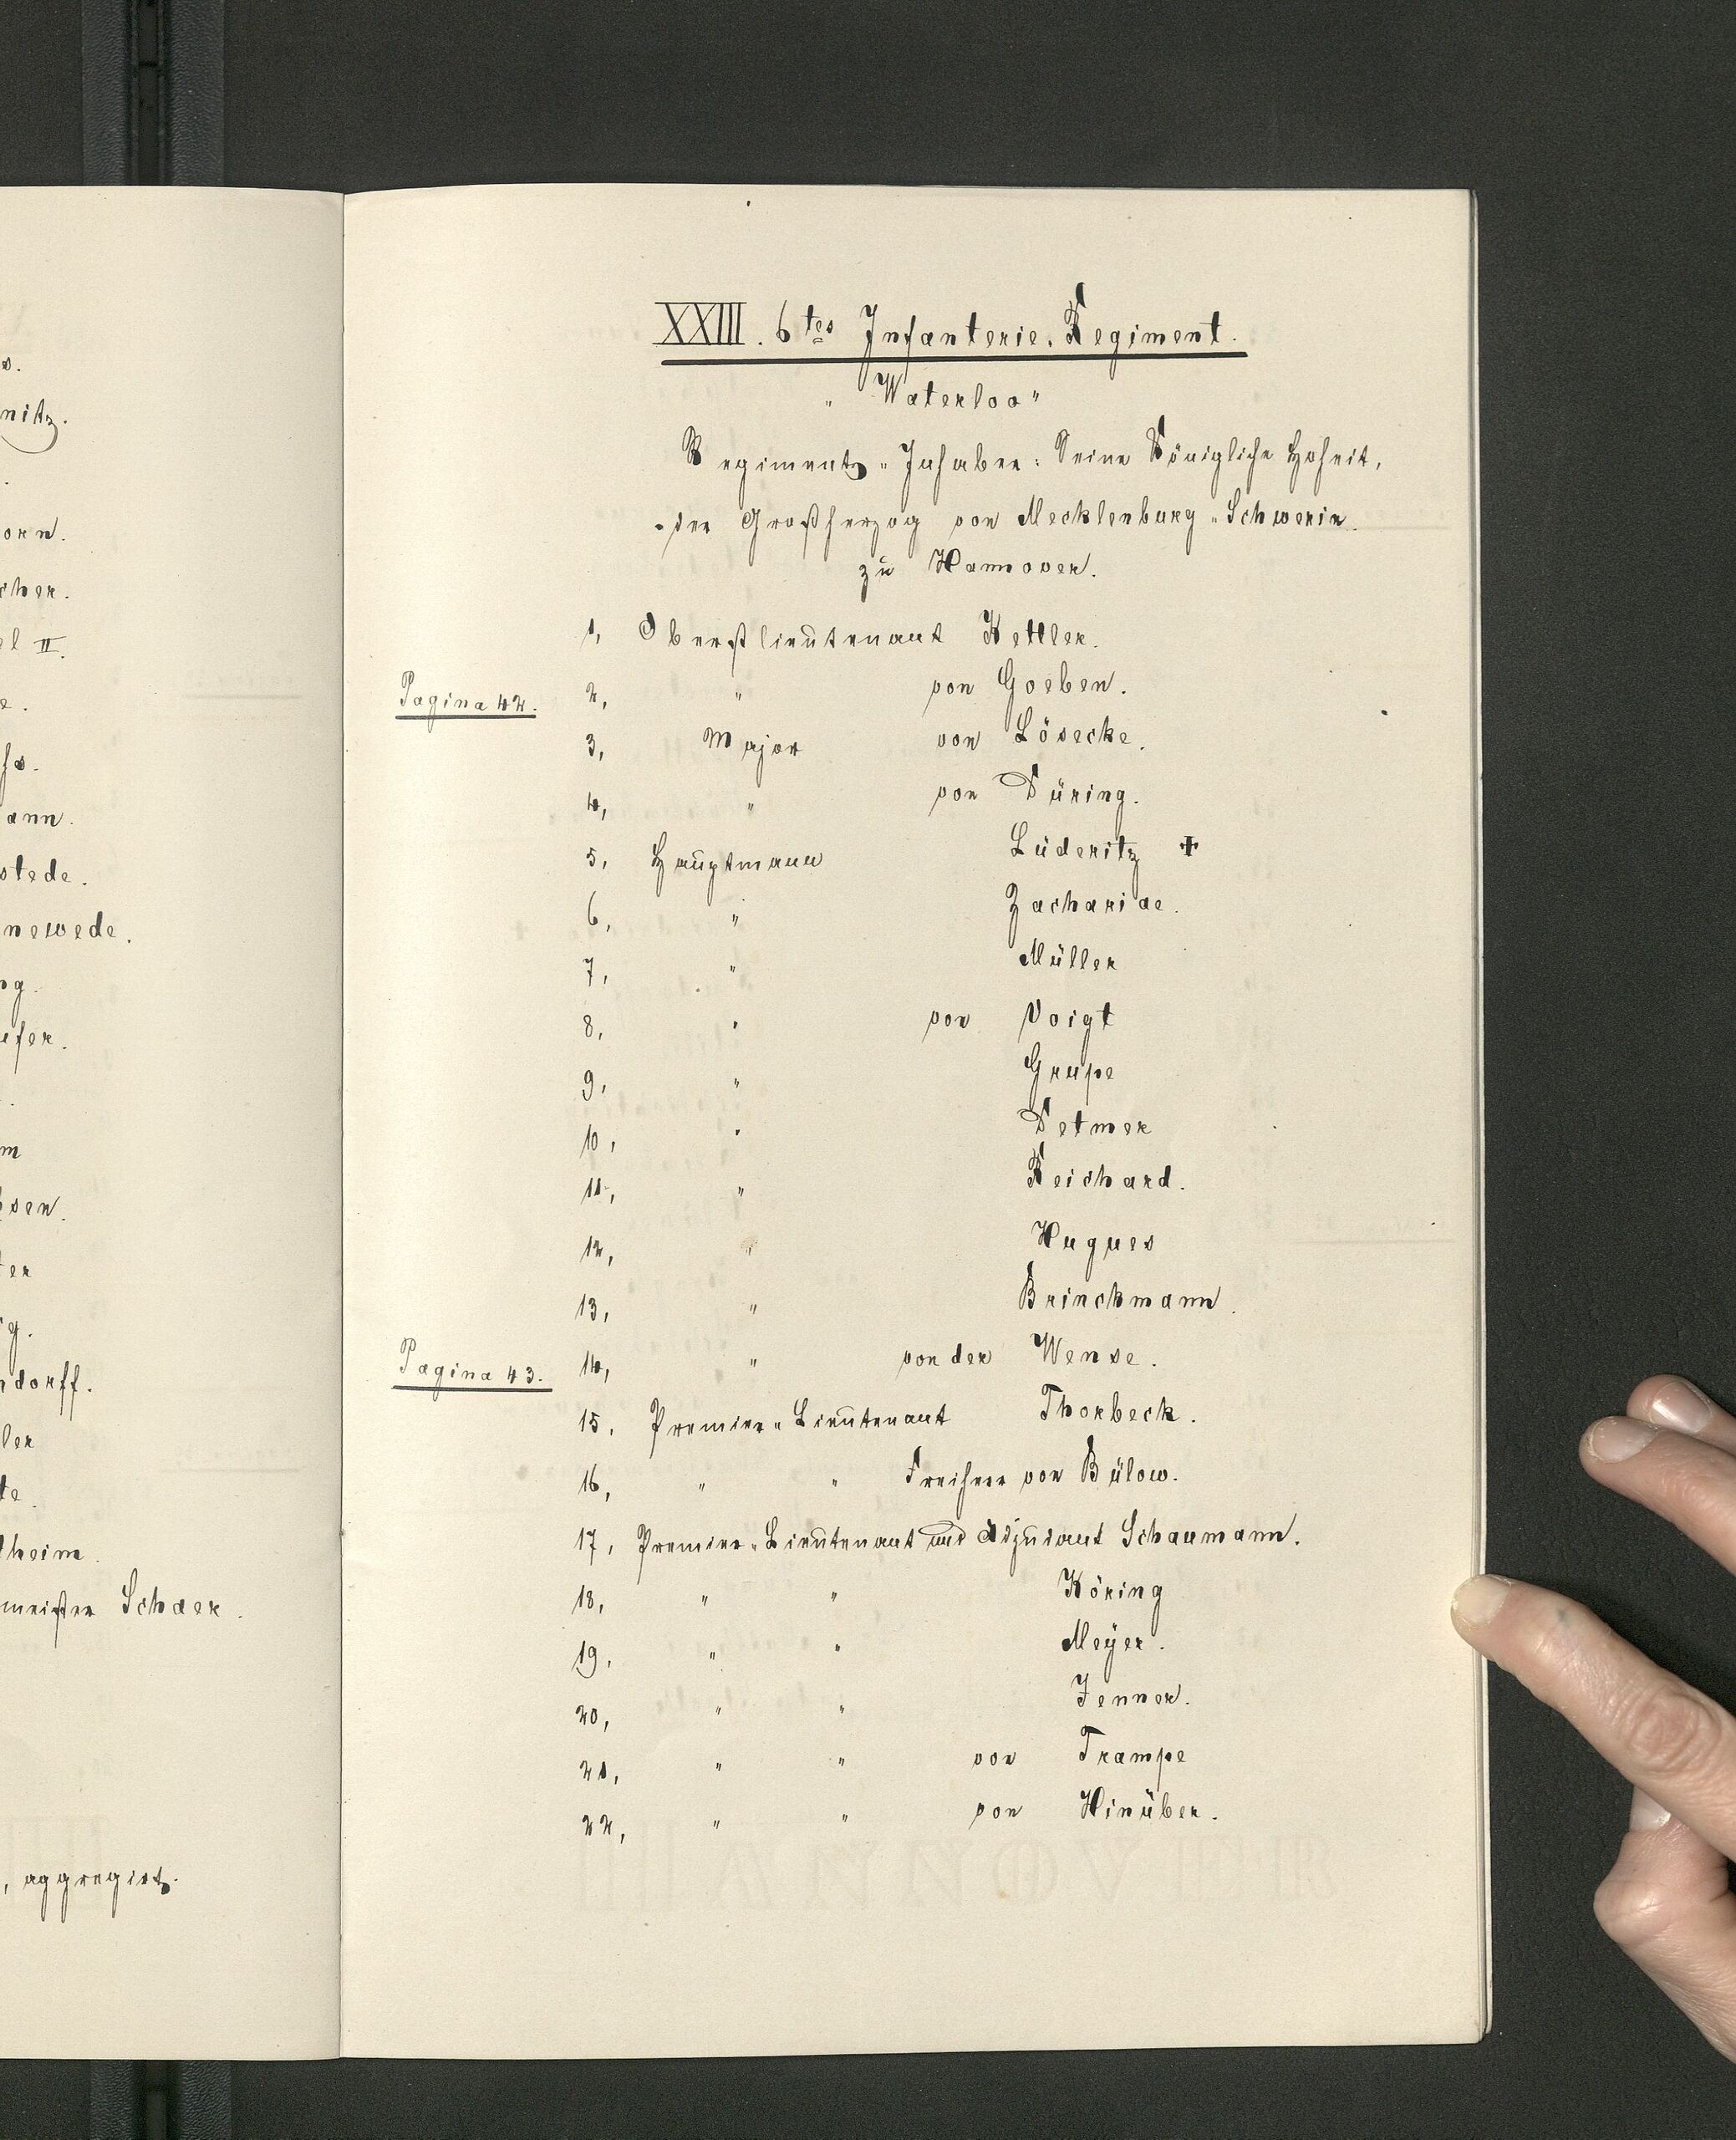 s.
nitz.
orn.
cher.
el II.
e.
hs.
ann.
stede.
newede.
ng.
ufer.
m
sen.
ter
ig.
ndorff.
ler
te.
theim.
meister Schaer.
, aggregirt.
XXIII. 6tes Infanterie-Regiment.
"Waterloo"
Regiments-Inhaber: Seine Königliche Hoheit,
der Großherzog von Mecklenburg-Schwerin.
zu Hannover.
1, Oberstlieutenant Kettler.
Pagina 42. 2, " von Goeben.
3, Major von Lösecke.
4, " von Düring.
5, Hauptmann Lüderitz ✝
6, " Zachariae.
7, " Müller
8, " von Voigt
9, " Grupe
10, " Detmer
11, " Reichard.
12, " Hugues
13, " Brinckmann.
Pagina 43. 14, " von der Wense.
15, Premier-Lieutenant Thorbeck.
16, " " Freiherr von Bülow.
17, Premier-Lieutenant und Adjudant Schaumann.
18, " " Köring
19, " " Meÿer.
20, " " Jenner.
21, " " von Trampe
22, " " von Hinüber.